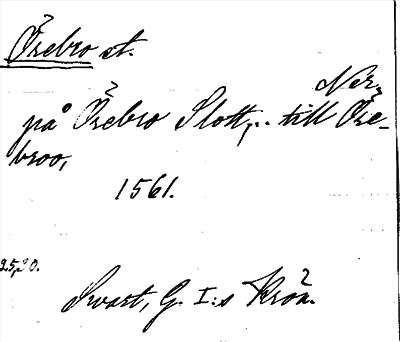 Örebro st.
Ner.
på Örebro Slott,.. till Öre-
broo,
1561.
25,20.
Svart, G. I:s Krön.